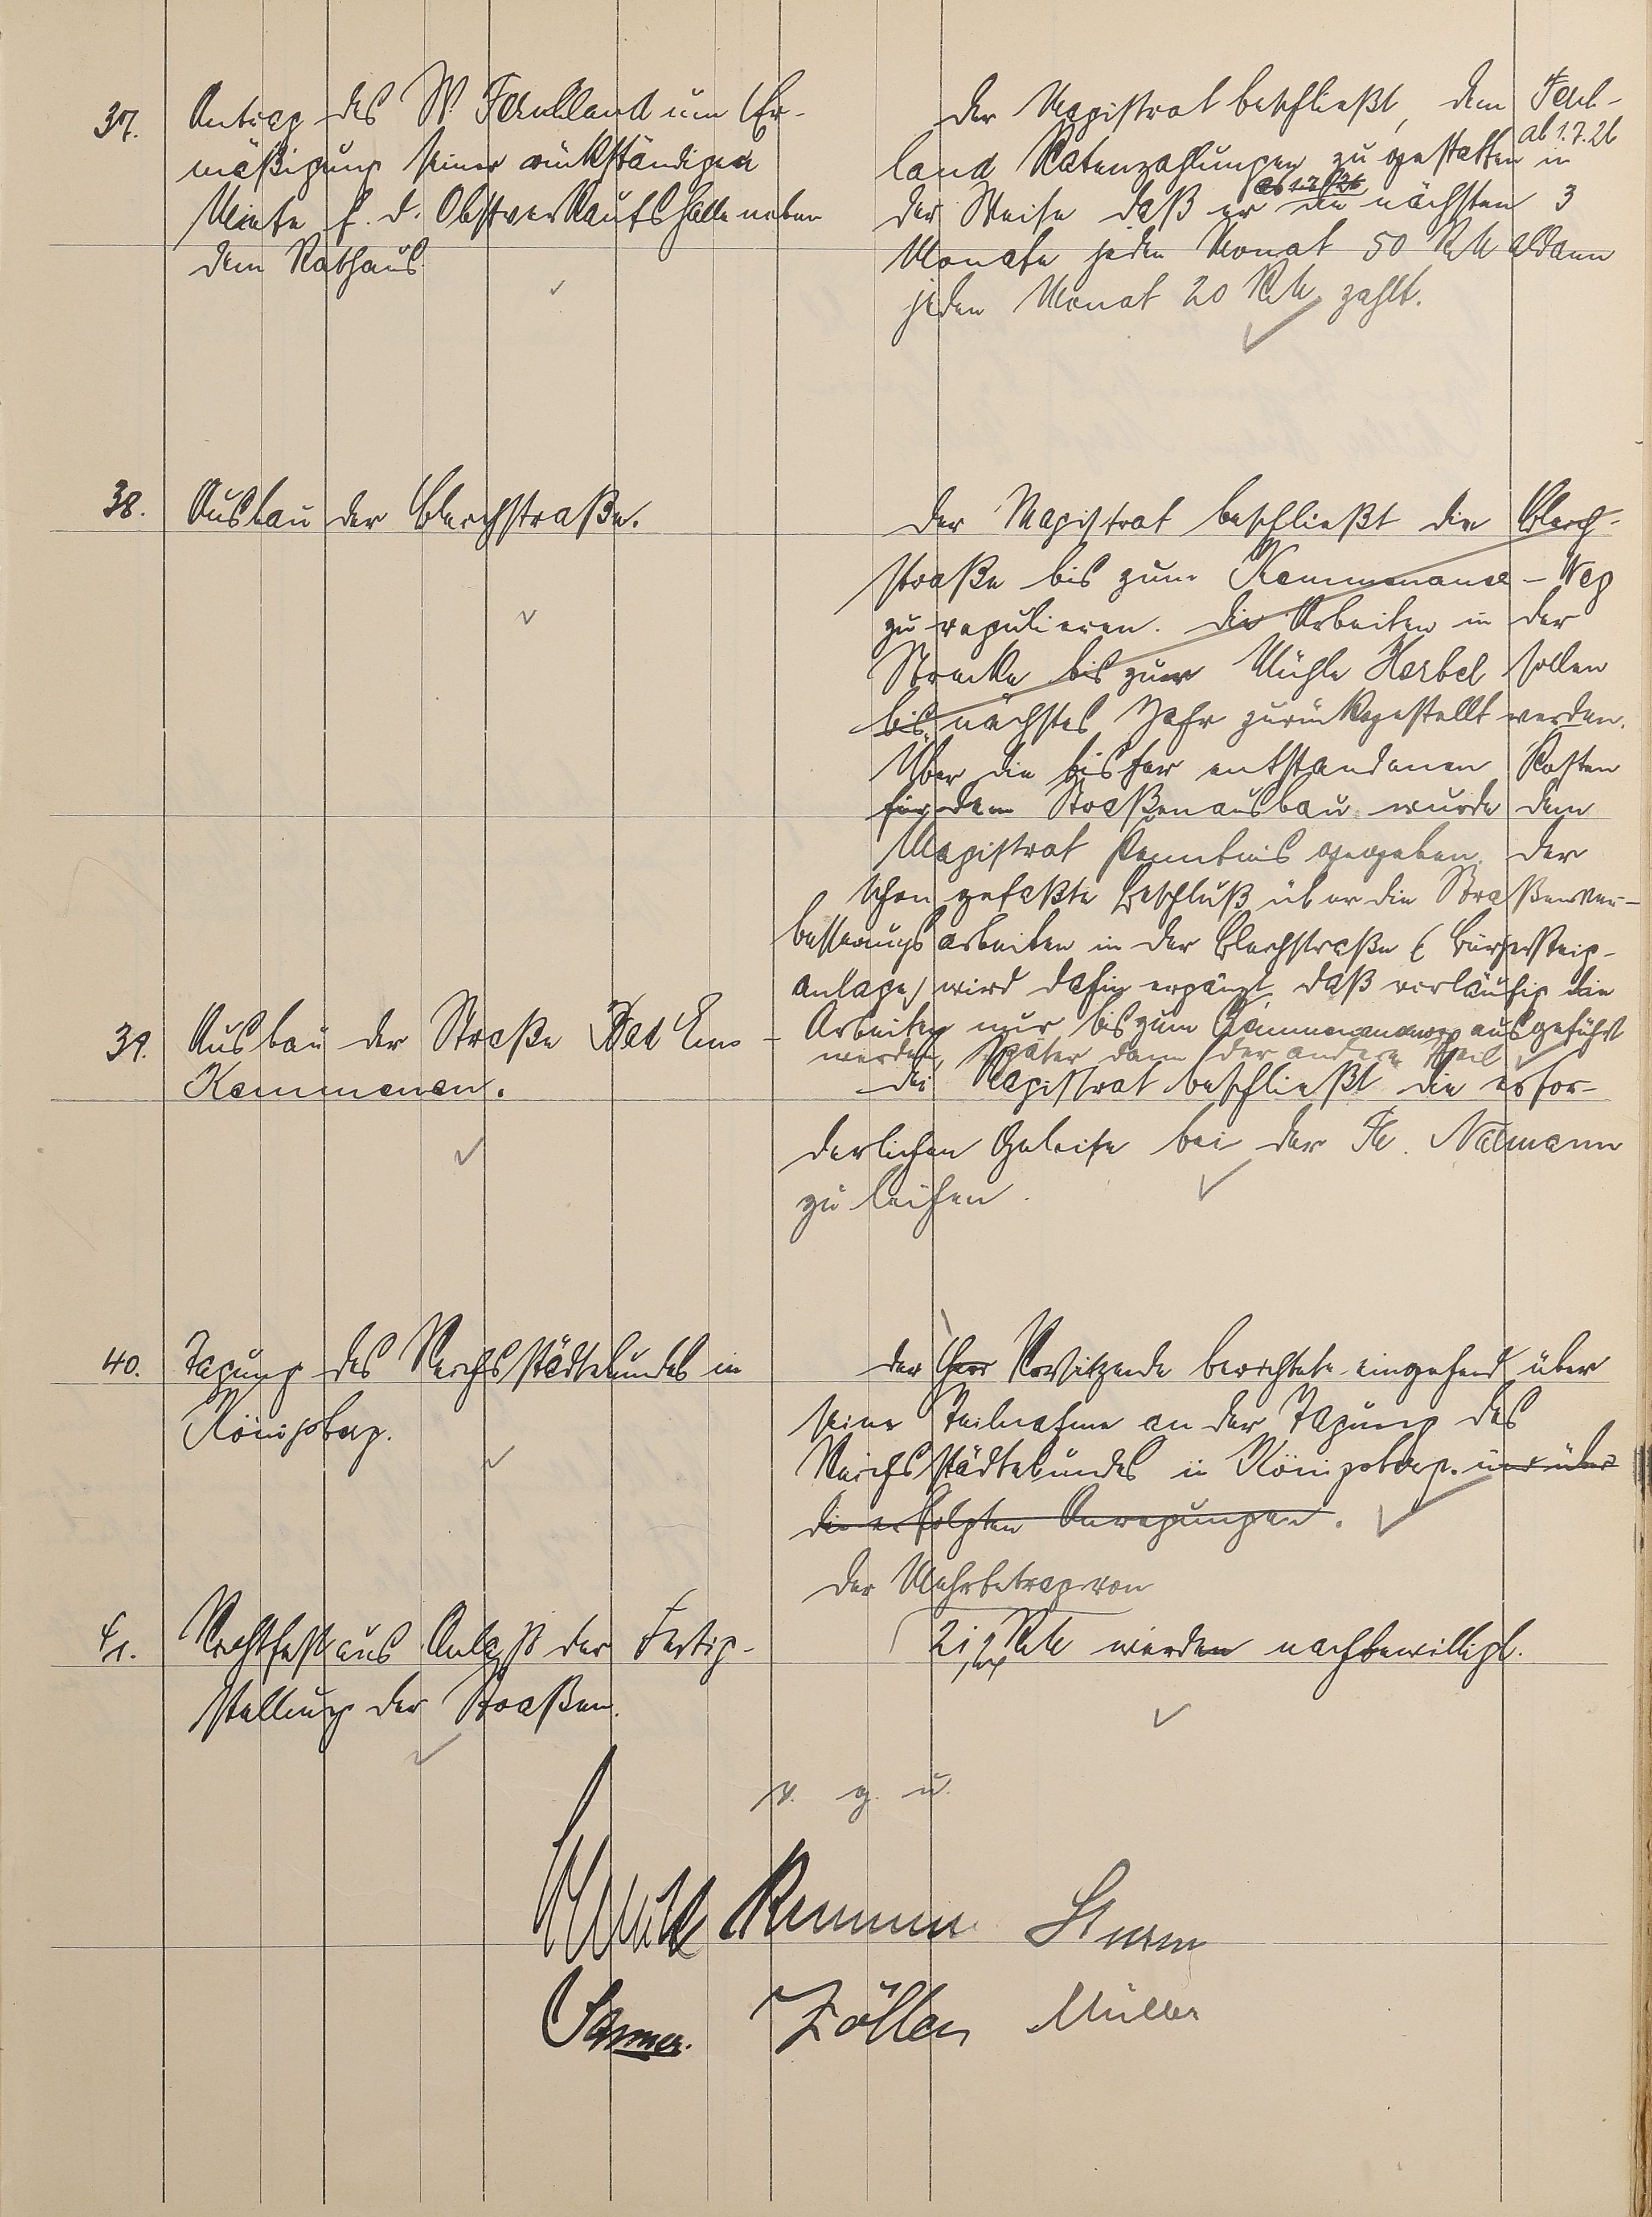 37.
Antrag des W. Faulland um Er-
mäßigung seiner rückständigen
Miete f. d. Obstverkaufshalle neben
dem Rathaus.
Der Magistrat beschließt, dem Faul-
land Ratenzahlungen zu gestatten ab 1.7.26 in
der Weise daß er ab 1.7.26 die nächsten 3
Monate jeden Monat 50 RM alsdann
jeden Monat 20 RM zahlt.
38.
Ausbau der Blechstraße.
Der Magistrat beschließt die Blech-
straße bis zum Kemmenauer-Weg
zu regulieren. Die Arbeiten in der
Strecke bis zur Mühle Herbel sollen
bis nächstes Jahr zurückgestellt werden.
Über die bisher entstandenen Kosten
für den Straßenausbau wurde dem
Magistrat Kenntnis gegeben. Der
schon gefaßte Beschluß über die Straßenver-
besserungsarbeiten in der Blechstraße (Bürgersteig-
anlage) wird dahin ergänzt, daß vorläufig die
Arbeiten nur bis zum ausgeführt
werden, später dann der andere Teil
39.
Ausbau der Straße Bad Ems -
Kemmenau.
Der Magistrat beschließt die erfor-
derlichen Geleise bei der Fa. Naumann
zu leihen.
40.
Tagung des Reichsstädtebundes in
Königsberg.
Der Herr Vorsitzende berichtete eingehend über
seine Teilnahme an der Tagung des
Reichsstädtebundes in Königsberg. und über
die erfolgten Anregungen.
41.
Richtfest aus Anlaß der Fertig-
stellung der Straßen.
Der Mehrbetrag von
RM werden nachbewilligt.
v. g. u.
Sturm
Zöller Müller